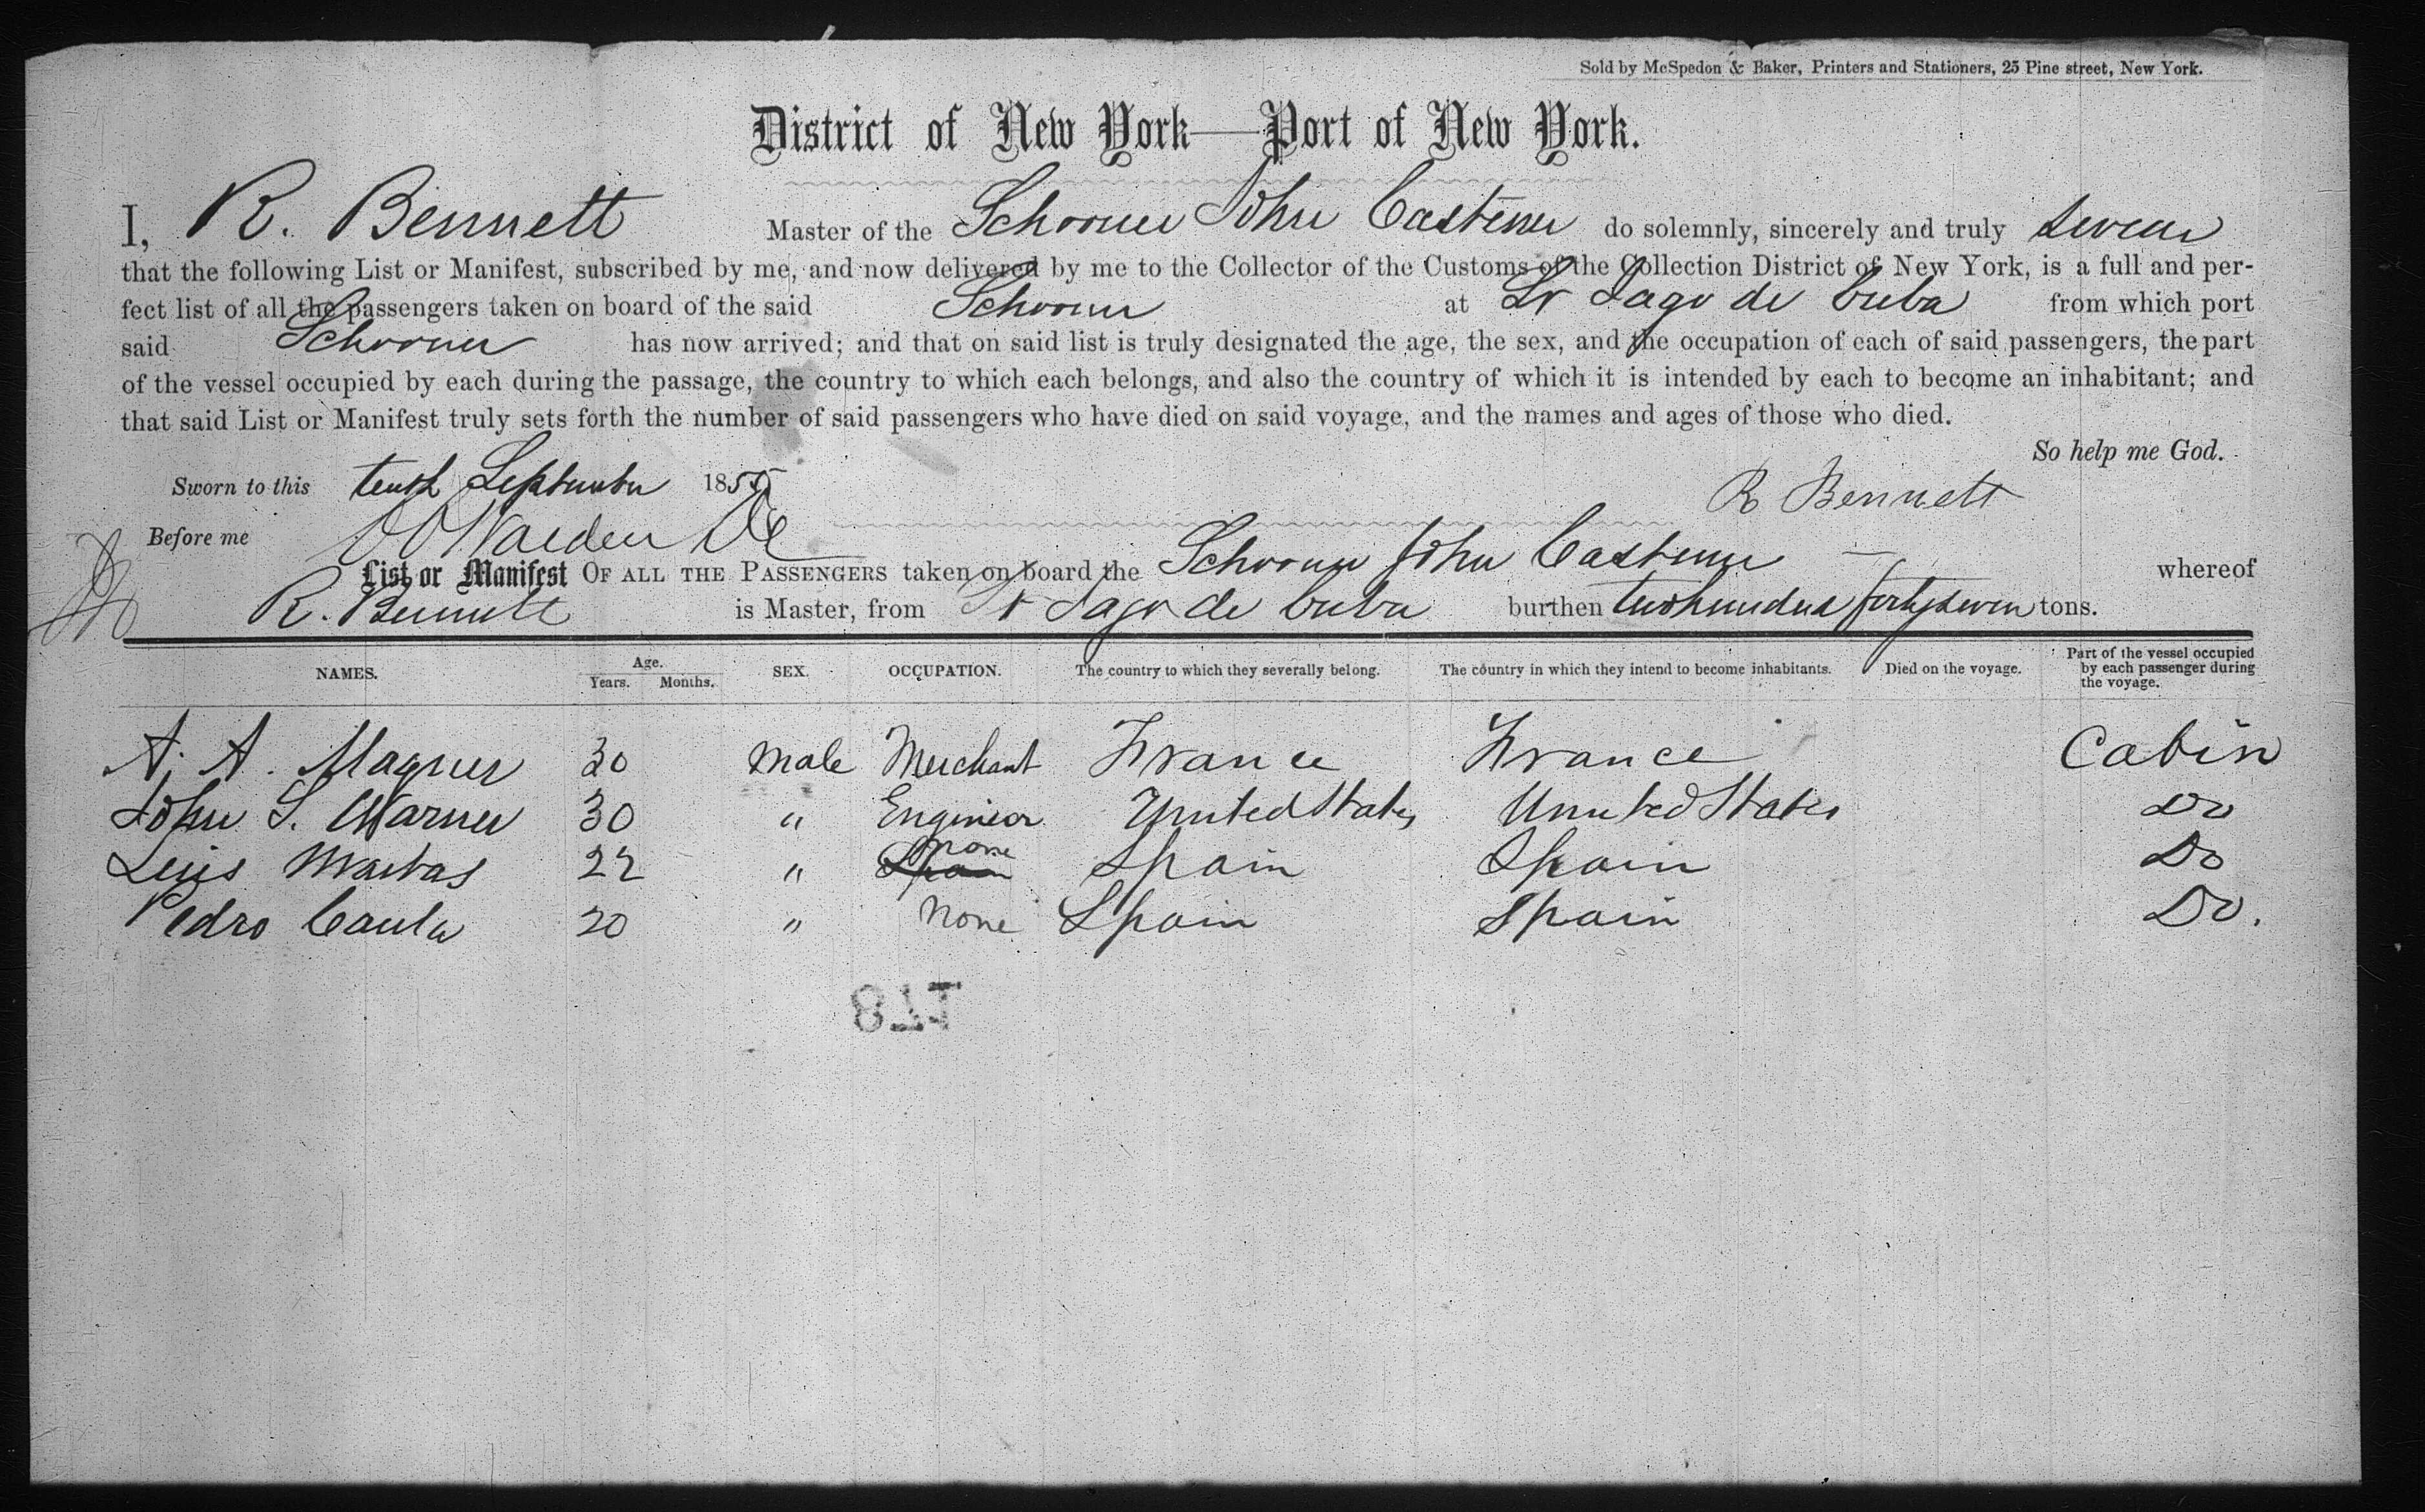 Sold by McSpedon & Baker, Printers and Stationers, 25 Pine street, New York.
District of New York—Port of New York.
I, R. Bennett Master of the Schooner John Castner do solemnly, sincerely and truly swear
that the following List or Manifest, subscribed by me, and now delivered by me to the Collector of the Customs of the Collection District of New York, is a full and per-
fect list of all the passengers taken on board of the said Schooner at St Jago de Cuba from which port
said Schooner has now arrived; and that on said list is truly designated the age, the sex, and the occupation of each of said passengers, the part
of the vessel occupied by each during the passage, the country to which each belongs, and also the country of which it is intended by each to become an inhabitant; and
that said List or Manifest truly sets forth the number of said passengers who have died on said voyage, and the names and ages of those who died.
So help me God.
Sworn to this tenth September 1855 R Bennett
Before me
List or Manifest OF ALL THE PASSENGERS taken on board the Schooner John Castner — whereof
R. Bennett is Master, from St Jago de Cuba burthen two hundred forty seven tons.
NAMES. Age. Years. Months. SEX. OCCUPATION. The country to which they severally belong. The country in which they intend to become inhabitants. Died on the voyage. Part of the vessel occupied by each passenger during the voyage.
A. A. Magner 30 Male Merchant France France Cabin
John S. Warner 30 " Engineer United States United States Do
Luis 22 " none Spain Spain Do
Pedro 20 " None Spain Spain Do.
178